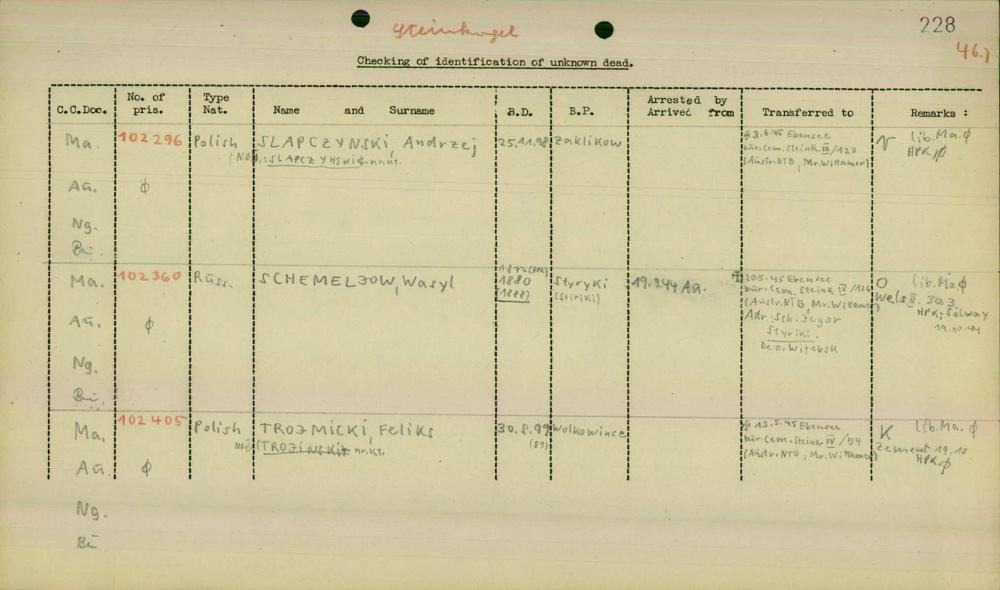 Steinkogel
228
46.)
Checking of identification of unknown dead.
C.C.Doc. No. of pris. Type Nat. Name and Surname B.D. B.P. Arrested by Arrived from Transferred to Remarks :
Ma. 102296 Polish SLAPCZYNSKI, Andrzej 25.11.98 Zaklikow
(NTB: SLAPCZYHSKI nr.kt.
✝ 3.6.45 Ebensee
bür.Cem.Steink. IV/123
(Austr.NTB, Mr. Wittamer)
N lib.Ma. ϕ
HPK, ϕ
Aü. ϕ
Ng.
Bü.
Ma. 102360 Russ. SCHEMELJOW, Wasyl
1872 (HPK)
1880
(1888)
Styryki
(Stiriki)
19.9.44 Aü.
✝ 20.5.45 Ebensee
bür.Cem. Steink IV/126
(Austr.NTB, Mr. Wittamer)
Adr: Sch. Jegor
Styriki.
Bez. Witebsk
O lib.Ma ϕ
Wels II. 30.3
HPK; Solway
19.10.44
Aü. ϕ
Ng.
Bü.
Ma. 102405 Polish TROJMICKI, Feliks 30.8.99 Wolkowince
NTB (TROJINSKI nr.kt. (89)
✝ 13.5.45 Ebensee
bür.Cem.Steink. IV/54
(Austr.NTB, Mr. Wittamer)
K lib.Ma. ϕ
Zement 19.10
HPK, ϕ
Aü. ϕ
Ng.
Bü